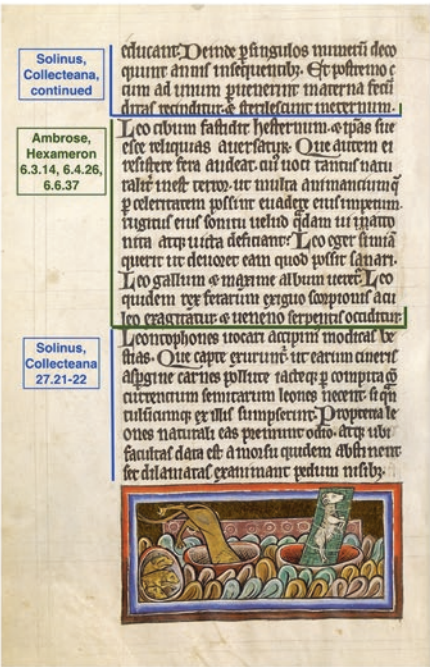 Solinus,
Collecteana,
continued
educant. Deinde ꝑ singulos numerū deco
quunt annis insequentibꝫ. Et postremo c
cum ad unum ꝑuenerint materna fecū
ditas reciditur. & sterilescunt ineternum.
Ambrose,
Hexameron
6.3.14, 6.4.26,
6.6.37
Leo cibum fastidit hesternum. & ipas sue
esce reliquias auersatur. Que autem ei
resistere fera audeat. cui uoci tantus natu
raliť inest terror. ut multa animancium q̄
ꝑ celeritatem possint euadere eius impetum.
rugitus eius sonitu uelud q̄dam ui
nita atqꝫ uicta deficiant. Leo eger simiā
querit ut deuoret eam quod possit sanari.
Leo gallum & maxime album ueret̄. Leo
quidem rex ferarum exiguo scorpionis acu
leo exagitatur. & ueneno serpentis occiditur.
Solinus,
Collecteana
27.21-22
Leontophones uocari accipim̄ modicas be
stias. Que capte exurunt̄. ut earum cineris
aspgine carnes pollute iacteqꝫ ꝑ compita cō
currentium semitarum leones necent. si qn̄
tulūcumqꝫ ex illis sumpserint. Propterea le
ones naturali eas premunt odio. atqꝫ ubi
facultas data est a morsu quidem abstinent
set dilaniatas exanimant pedum nisibꝫ.